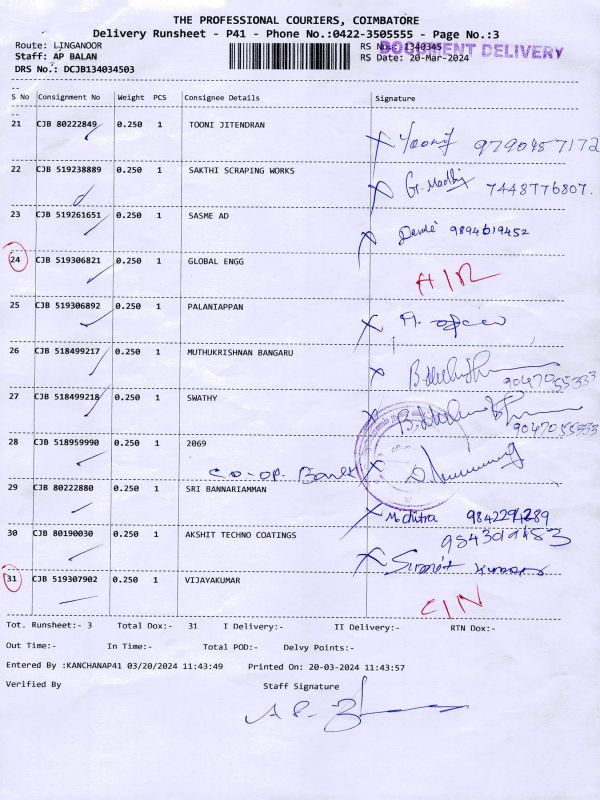 THE PROFESSIONAL COURIERS, COIMBATORE
Delivery Runsheet - P41 - Phone No.:0422-3505555 - Page No.:3
Route: LINGANOOR RS No.: 1340345 DOCUMENT DELIVERY
Staff: AP BALAN RS Date: 20-Mar-2024
DRS No.: DCJB134034503
S No Consignment No Weight PCS Consignee Details Signature
21 CJB 80222849 0.250 1 TOONI JITENDRAN
9790457172
22 CJB 519238889 0.250 1 SAKTHI SCRAPING WORKS
7448776807.
23 CJB 519261651 0.250 1 SASME AD
9894619452
24 CJB 519306821 0.250 1 GLOBAL ENGG
25 CJB 519306892 0.250 1 PALANIAPPAN
26 CJB 518499217 0.250 1 MUTHUKRISHNAN BANGARU
9047055333
27 CJB 518499218 0.250 1 SWATHY
9047055333
28 CJB 518959990 0.250 1 2069
CO-OP. Bank
29 CJB 80222880 0.250 1 SRI BANNARIAMMAN
M. Chitra 9842294289
30 CJB 80190030 0.250 1 AKSHIT TECHNO COATINGS
31 CJB 519307902 0.250 1 VIJAYAKUMAR
Tot. Runsheet:- 3 Total Dox:- 31 I Delivery:- II Delivery:- RTN Dox:-
Out Time:- In Time:- Total POD:- Delvy Points:-
Entered By :KANCHANAP41 03/20/2024 11:43:49 Printed On: 20-03-2024 11:43:57
Verified By Staff Signature